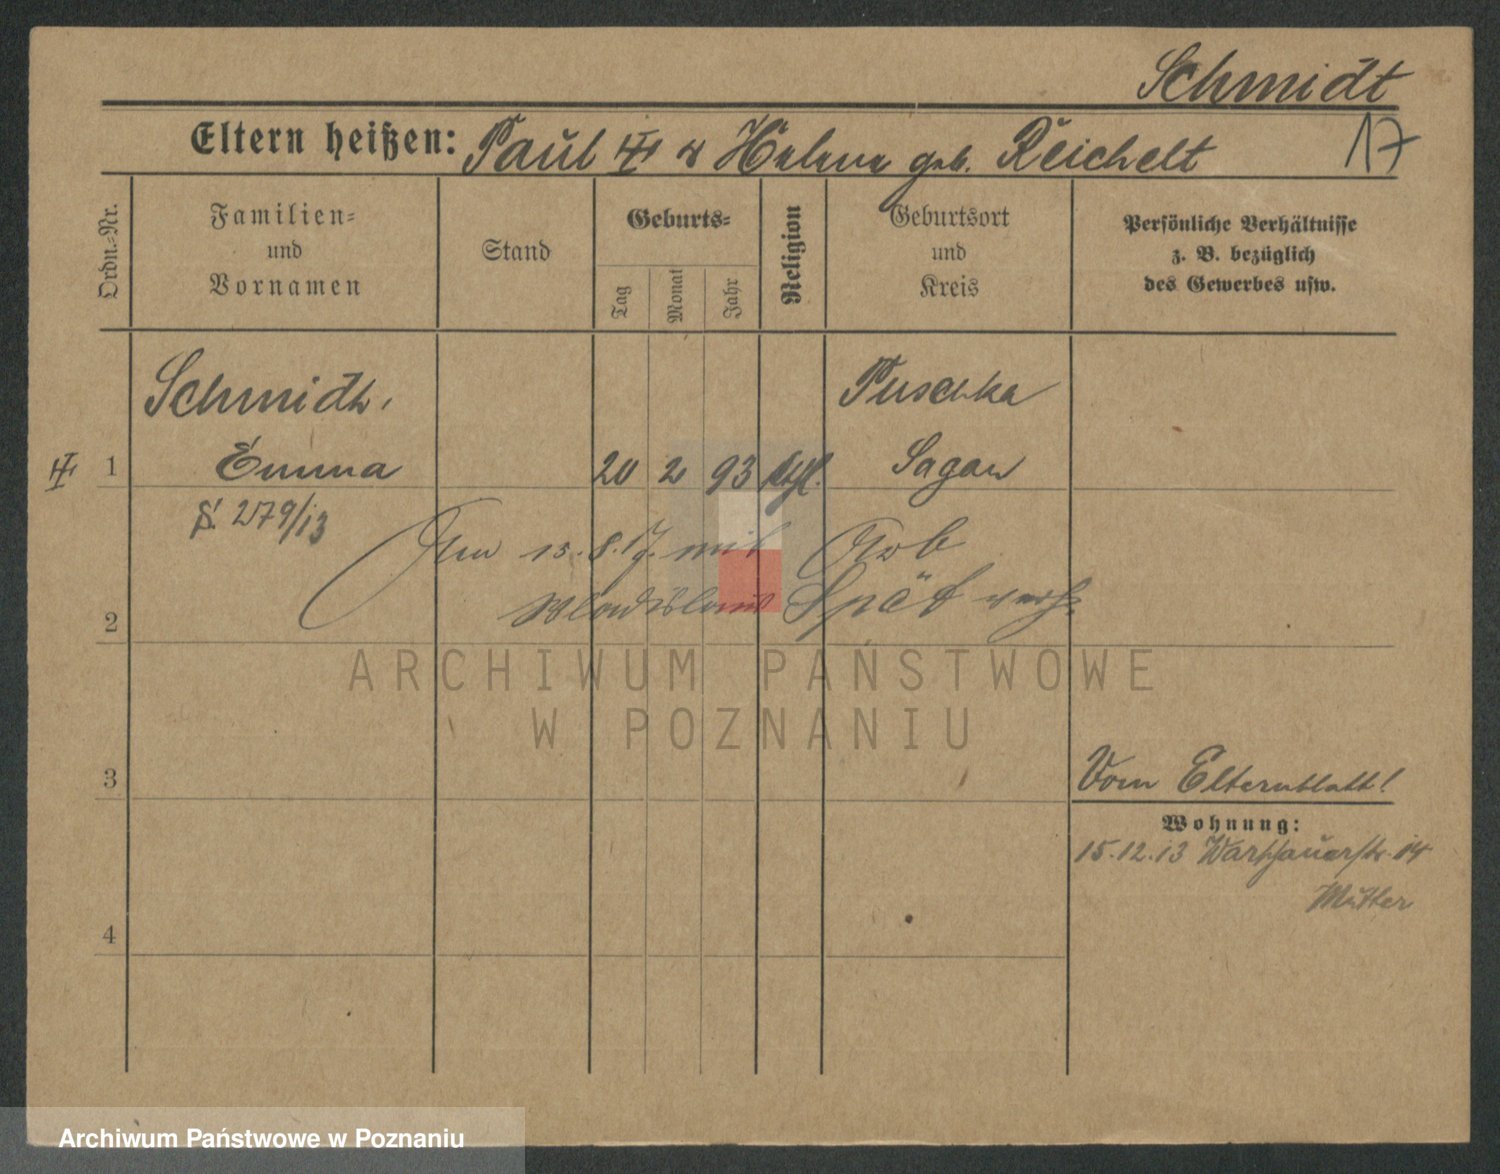 Schmidt
17
Eltern heißen: Paul u Helene geb. Reichelt
Ordn.-Nr.
Familien-
und
Vornamen
Stand
Geburts-
Tag
Monat
Jahr
Religion
Geburtsort
und
Kreis
Persönliche Verhältnisse
z. B. bezüglich
des Gewerbes usw.
Schmidt,
Puschka
1 Emma 20 2 93 kthl. Sagan
S. 279/13
Am 15.8.17. mit Arb
2 Wladislaus Spät verh.
ARCHIWUM PAŃSTWOWE
W POZNANIU
3 Vom Elternblatt!
Wohnung:
15.12.13 Warschauerstr. 14
Mutter
4
Archiwum Państwowe w Poznaniu